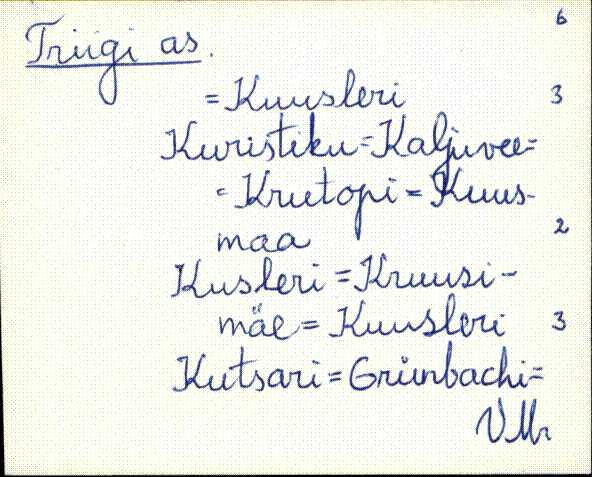 6
Triigi as.
= Kuusleri 3
Kuristiku = Kaljuvee =
= Krutopi = Kuus-
maa 2
Kusleri = Kruusi-
mäe = Kuusleri 3
Kutsari = Grünbachi =
VMr